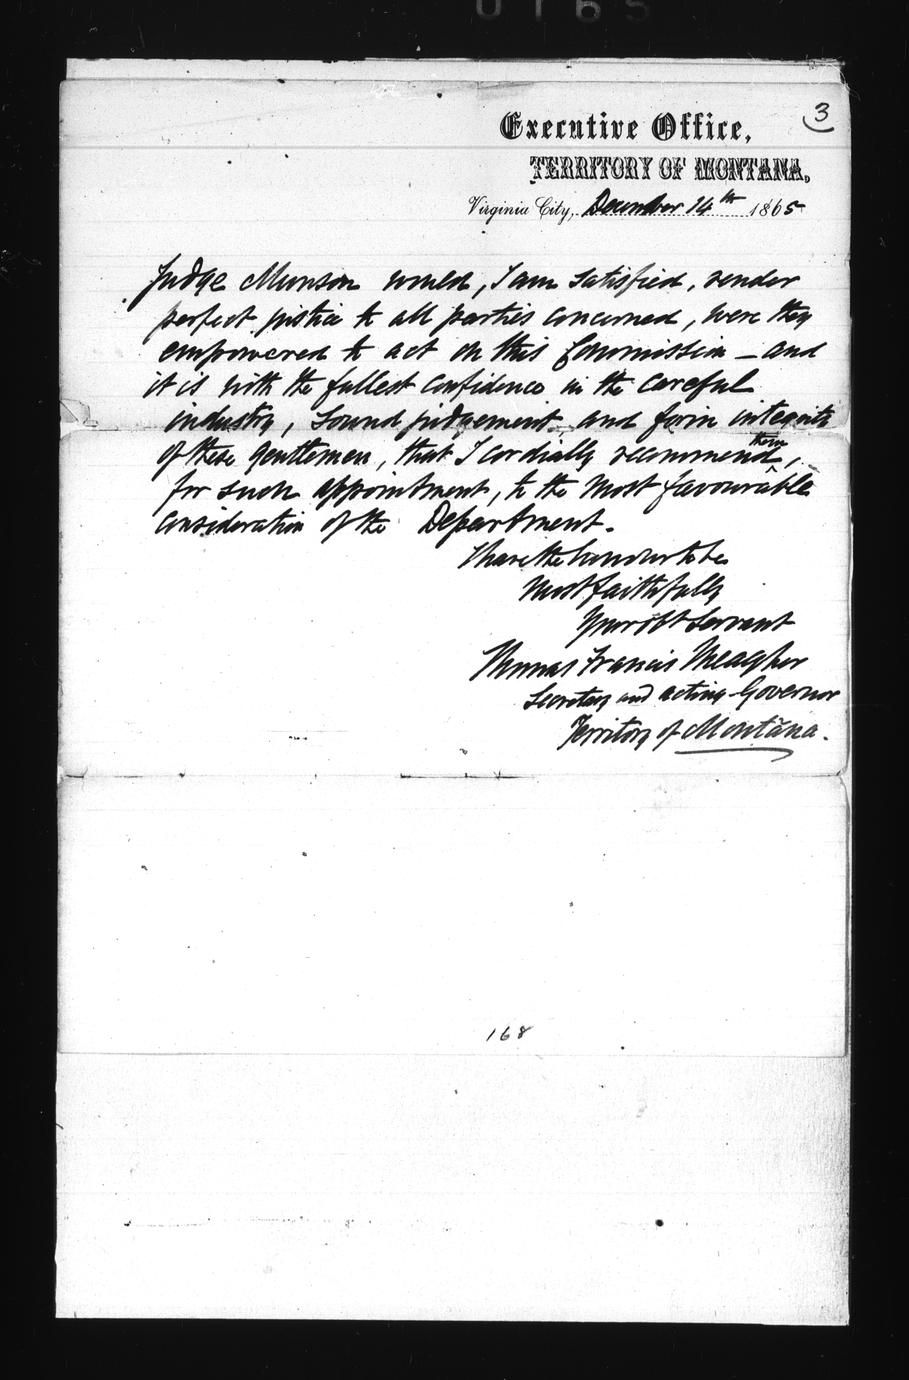 0165
3
Executive Office,
TERRITORY OF MONTANA,
Virginia City, December 14th 1865
Judge Munson would, I am satisfied, render
perfect justice to all parties concerned, were they
empowered to act on this Commission — and
it is with the fullest confidence in the careful
industry, sound judgement and firm integrity
of these gentlemen, that I cordially recommend them,
for such appointment, to the most favourable
consideration of the Department.
I have the honour to be
Most faithfully
Your obt Servant
Thomas Francis Meagher
Secretary and acting Governor
Territory of Montana.
168